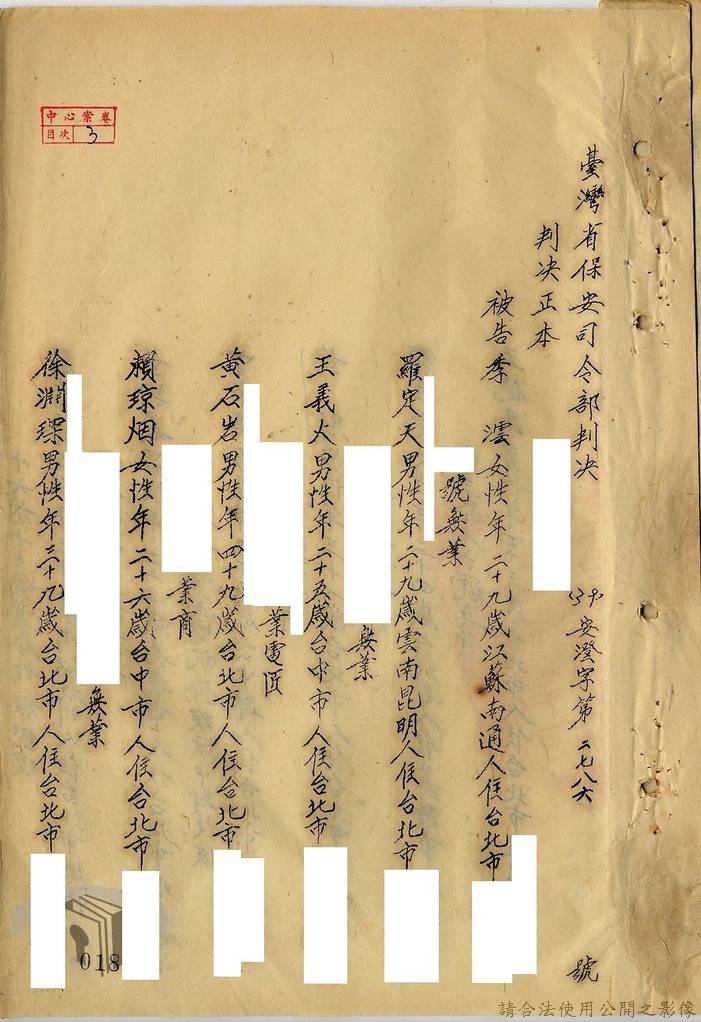 臺灣省保安司令部判決 (39)安澄字第二七八六號
判決正本
被告季 澐女性年二十九歲江蘇南通人住台北市
號無業
羅定天男性年二十九歲雲南昆明人住台北市
無業
王義火男性年二十五歲台中市人住台北市
業電匠
黃石岩男性年四十九歲台北市人住台北市
業商
賴瓊烟女性年二十六歲台中市人住台北市
無業
徐淵琛男性年三十九歲台北市人住台北市
中心案卷
目次 3
018
請合法使用公開之影像